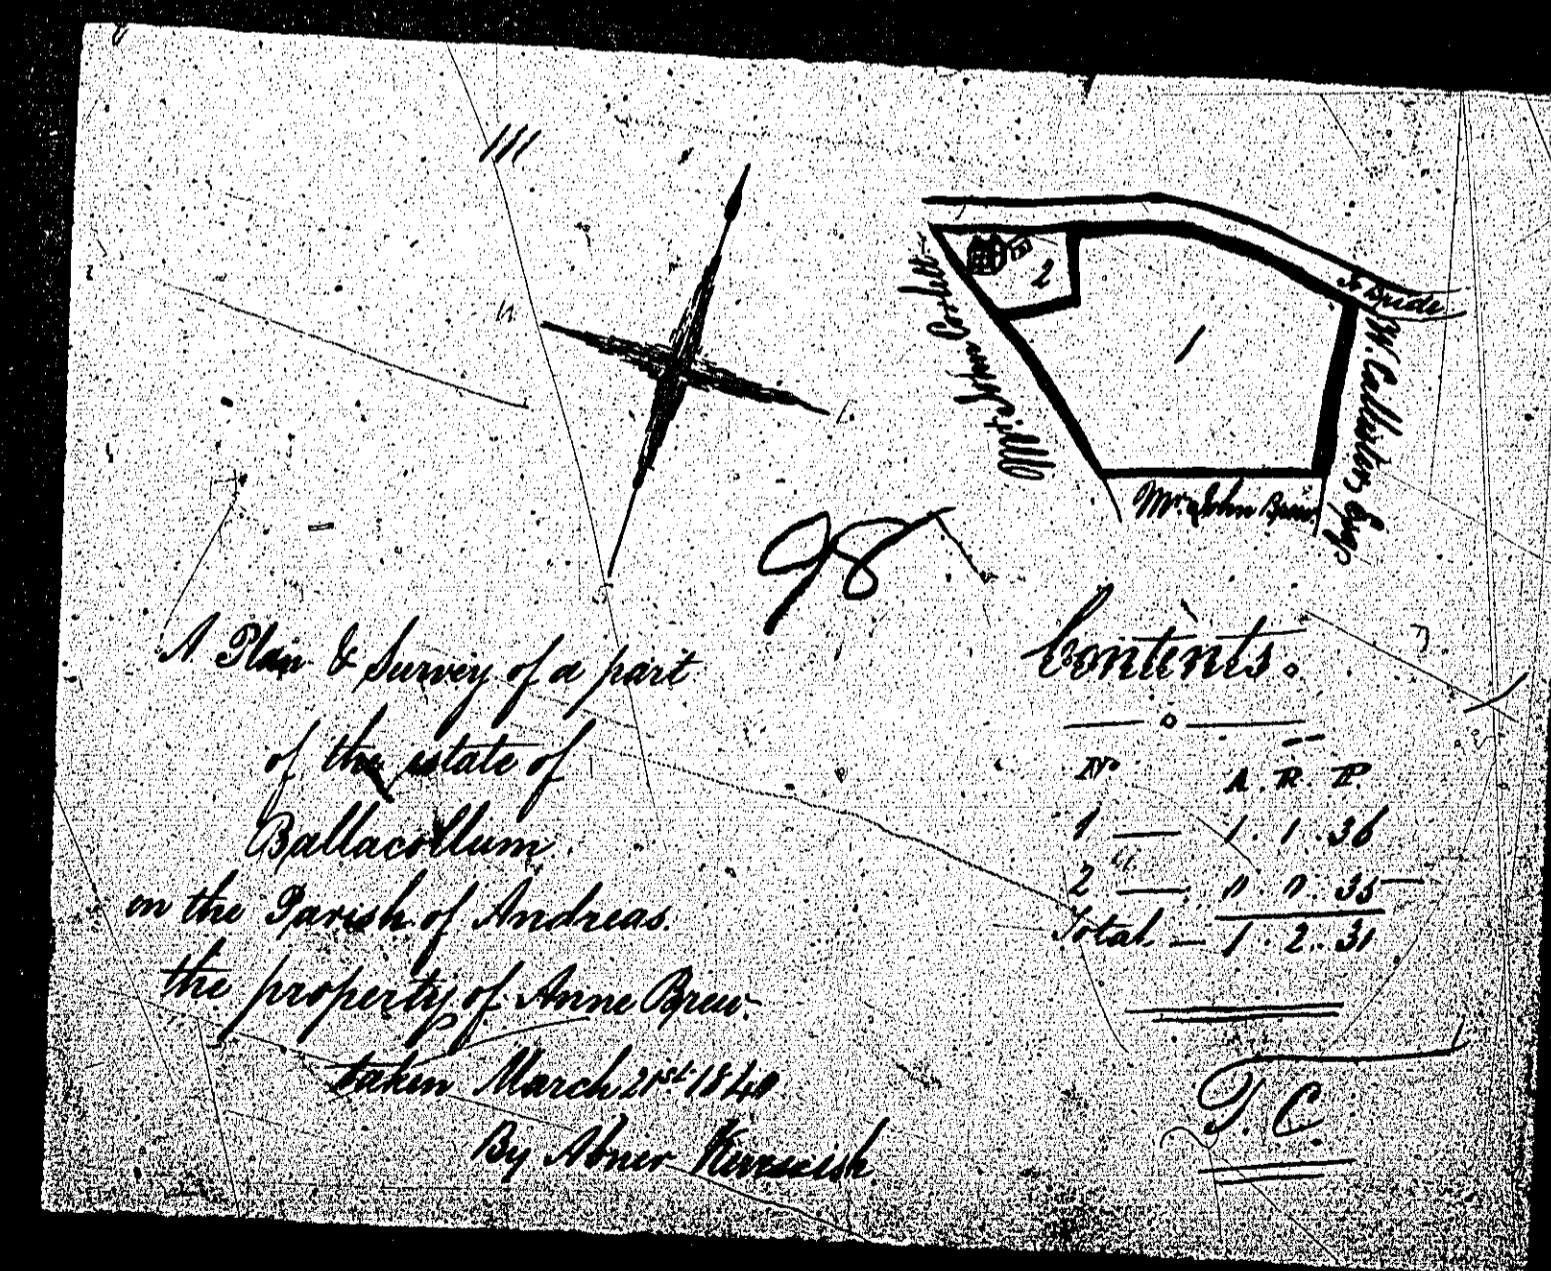 111
To Bride
2
1
Mr. John Corlett
W. Callister Esqr
Mr. John Brew.
98
A Plan & Survey of a part
of the estate of
Ballacollum
on the Parish of Andreas.
the property of Anne Brew.
taken March 21st 1840
By Abner
Contents.
No A. R. P.
1 — 1. 1. 36
2 " — 0. 0. 35
Total — 1. 2. 31
T. C.